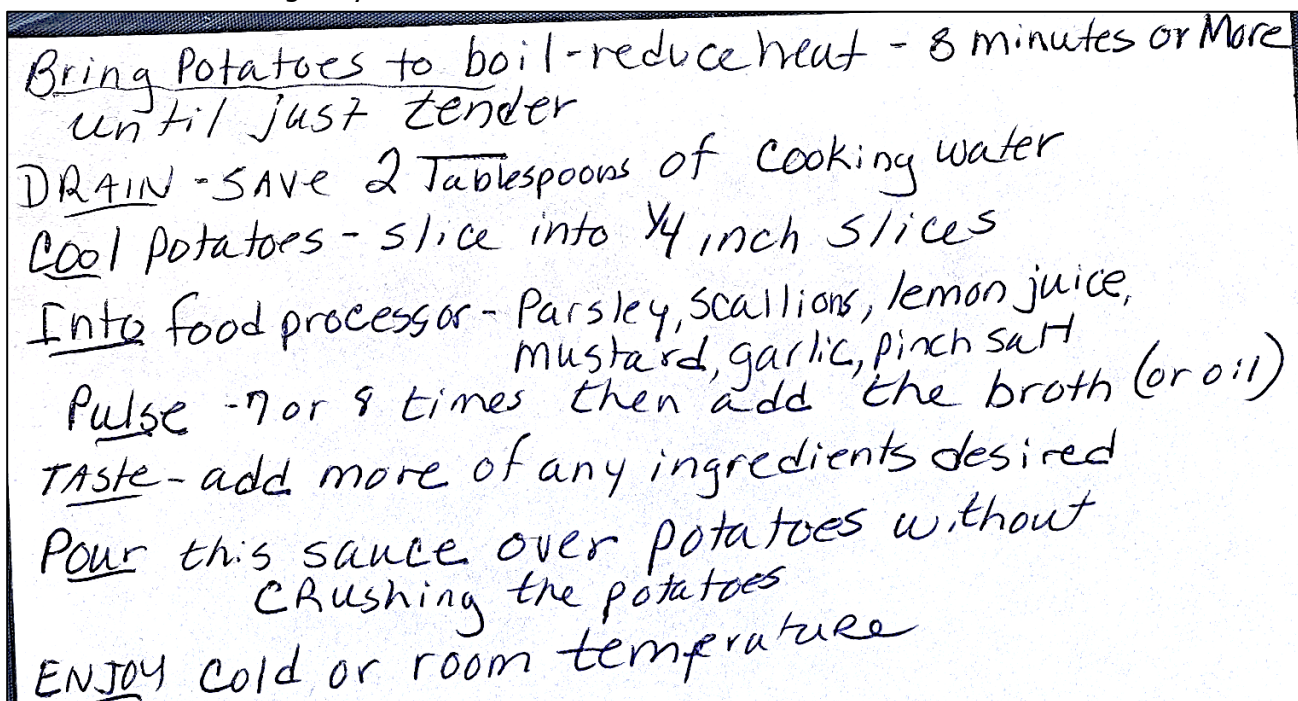 Bring Potatoes to boil-reduce heat - 8 minutes or More
until just tender
DRAIN - SAVE 2 Tablespoons of cooking water
Cool potatoes - slice into 1/4 inch slices
Into food processor - Parsley, scallions, lemon juice,
mustard, garlic, pinch salt
Pulse - 7 or 8 times then add the broth (or oil)
TASte - add more of any ingredients desired
Pour this sauce over potatoes without
CRushing the potatoes
ENJOY cold or room temperature